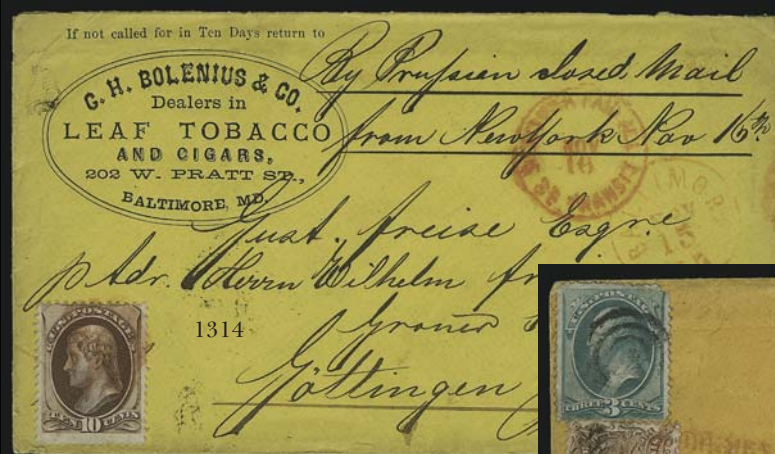 If not called for in Ten Days return to
C. H. BOLENIUS & CO.
Dealers in
LEAF TOBACCO
AND CIGARS,
202 W. PRATT ST.,
BALTIMORE, MD.
By Prussian closed Mail
from New York Nov 16th
Gust. Freise Esqre
p Adr. Herrn Wilhelm
Groner
Göttingen
1314
U.S. POSTAGE
TEN 10 CENTS
U.S. POSTAGE
THREE 3 CENTS